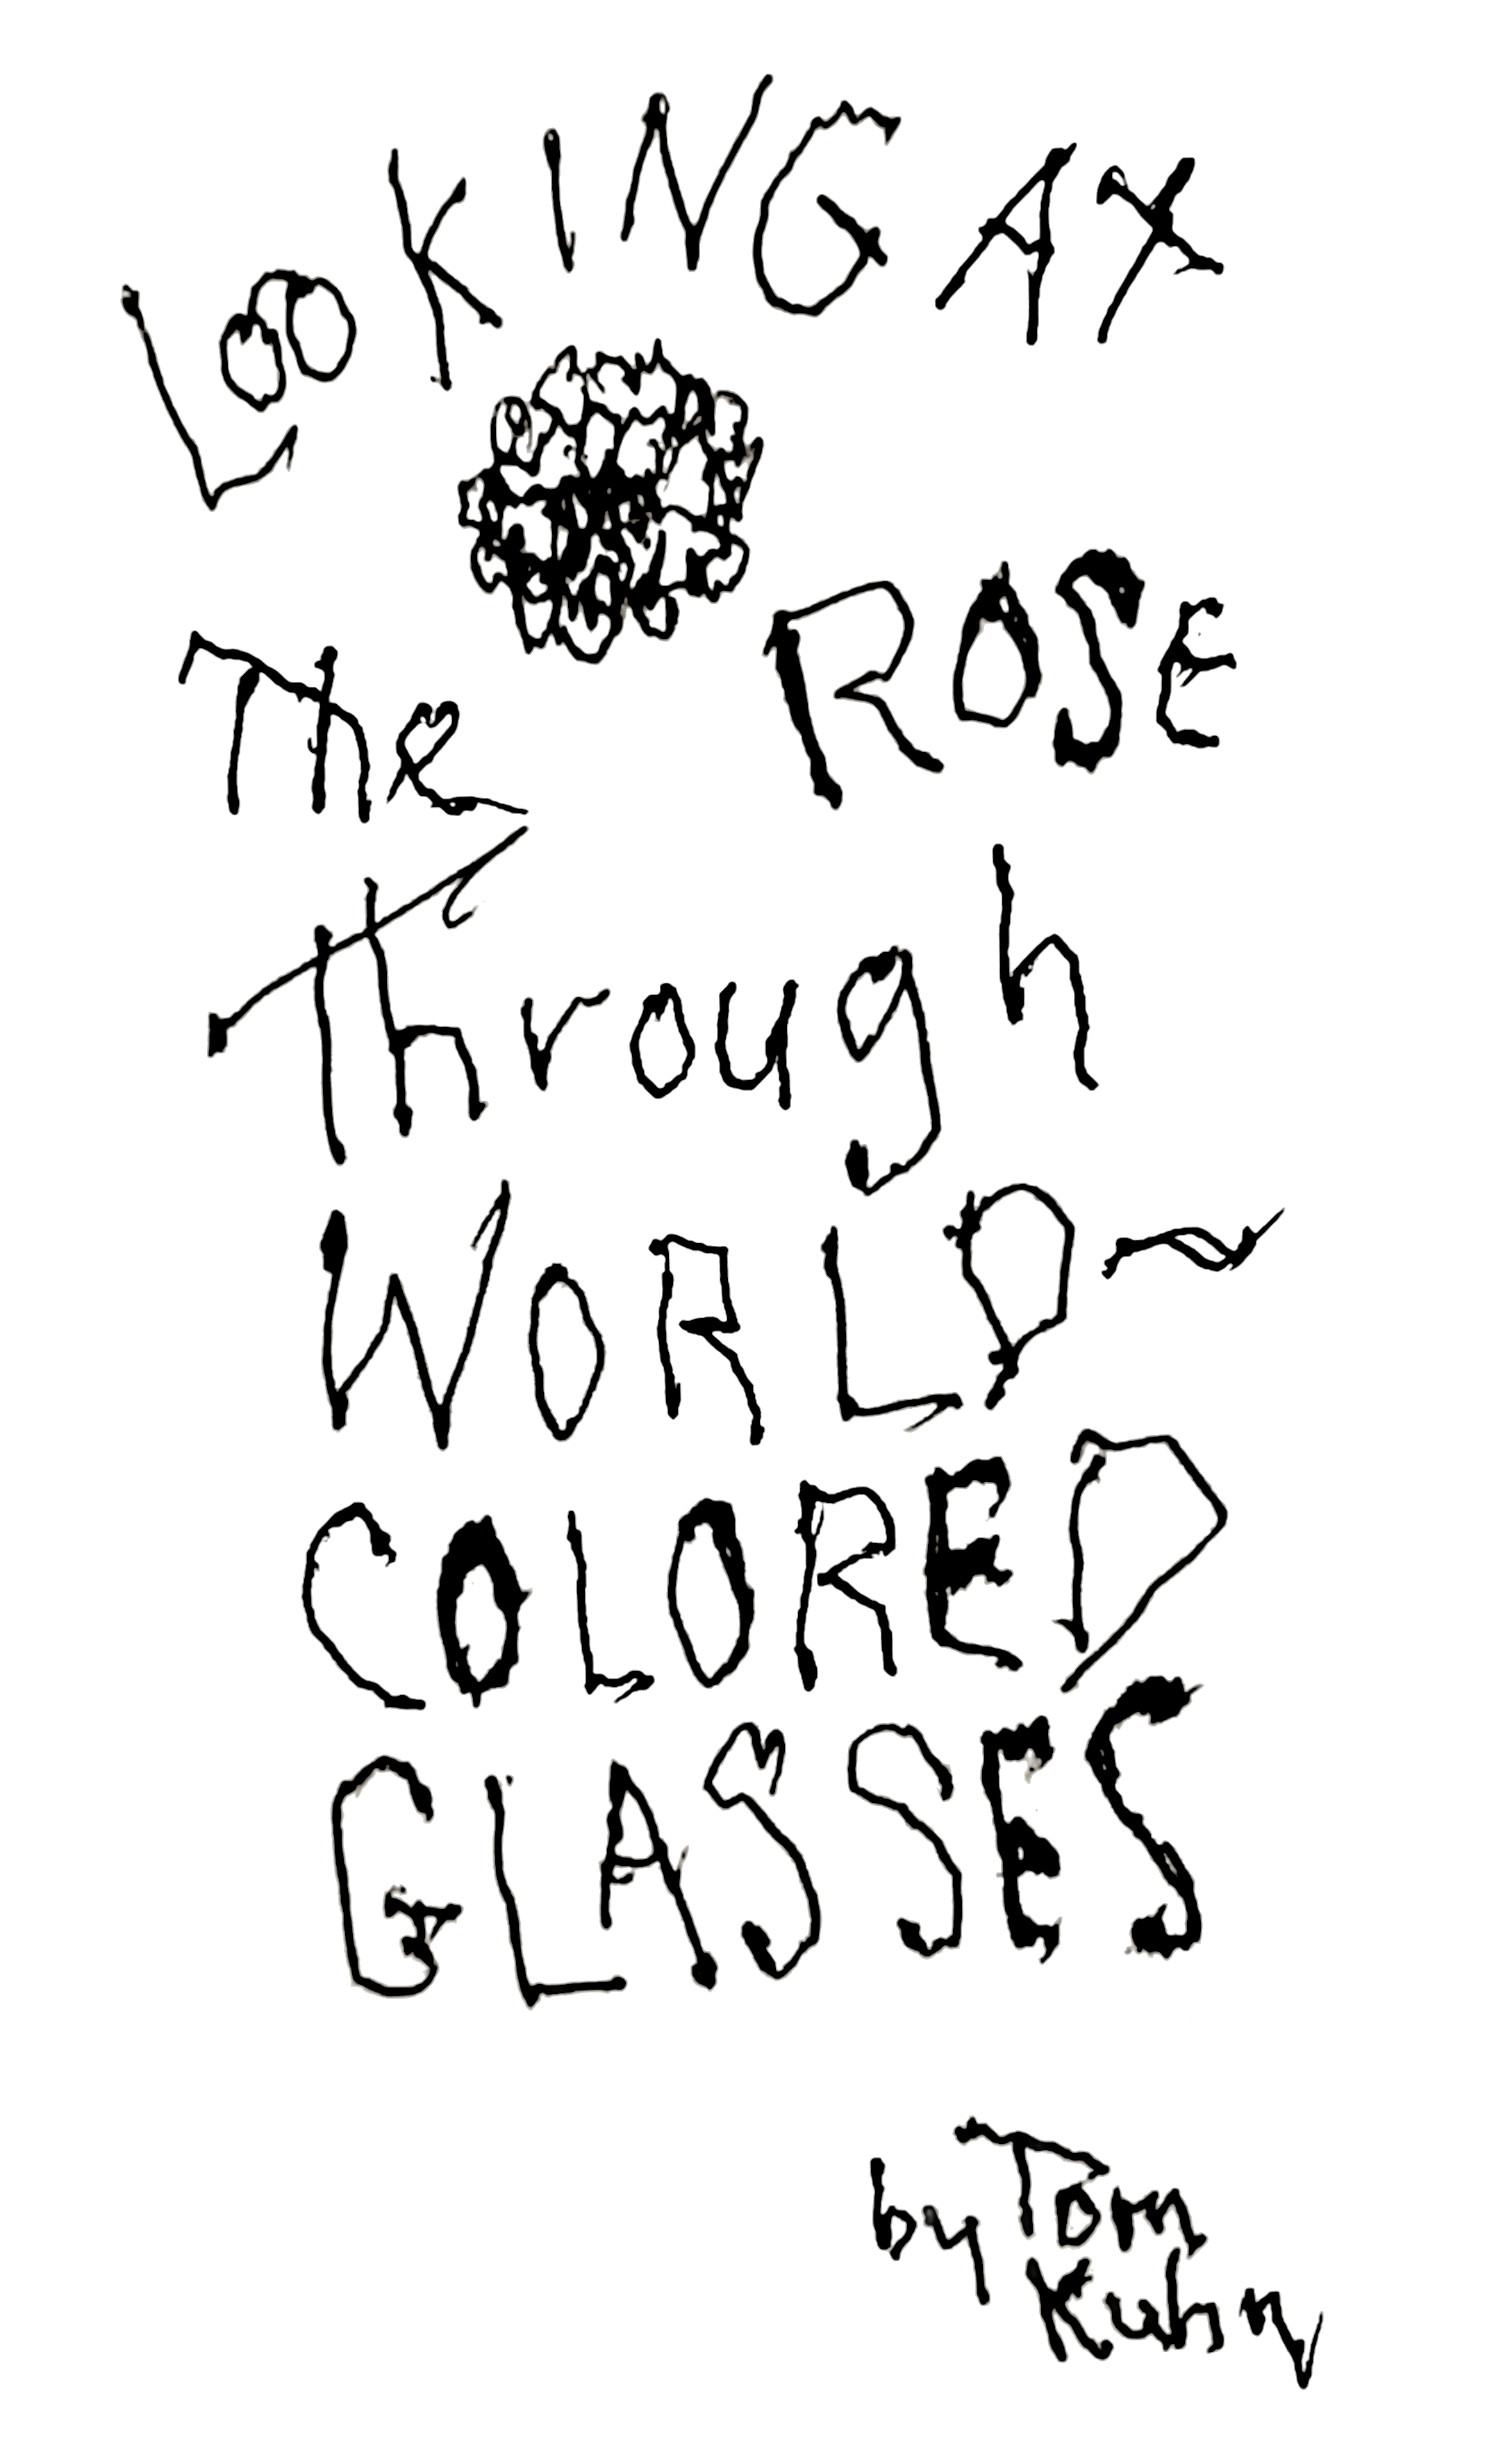 LOOKING AT
The ROSE
Through
WORLD~
COLORED
GLASSES
by Tom
Kuhn